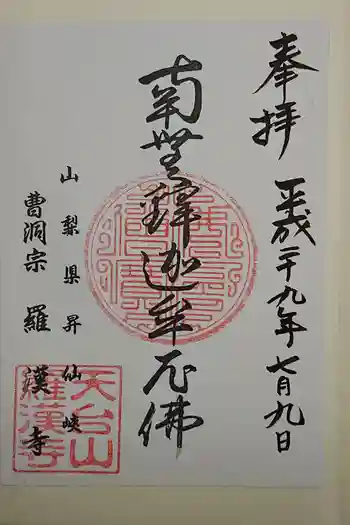 奉拝
平成二十九年七月九日
南無釋迦牟尼佛
山梨県昇仙峡
曹洞宗 羅漢寺
天台山
羅漢寺